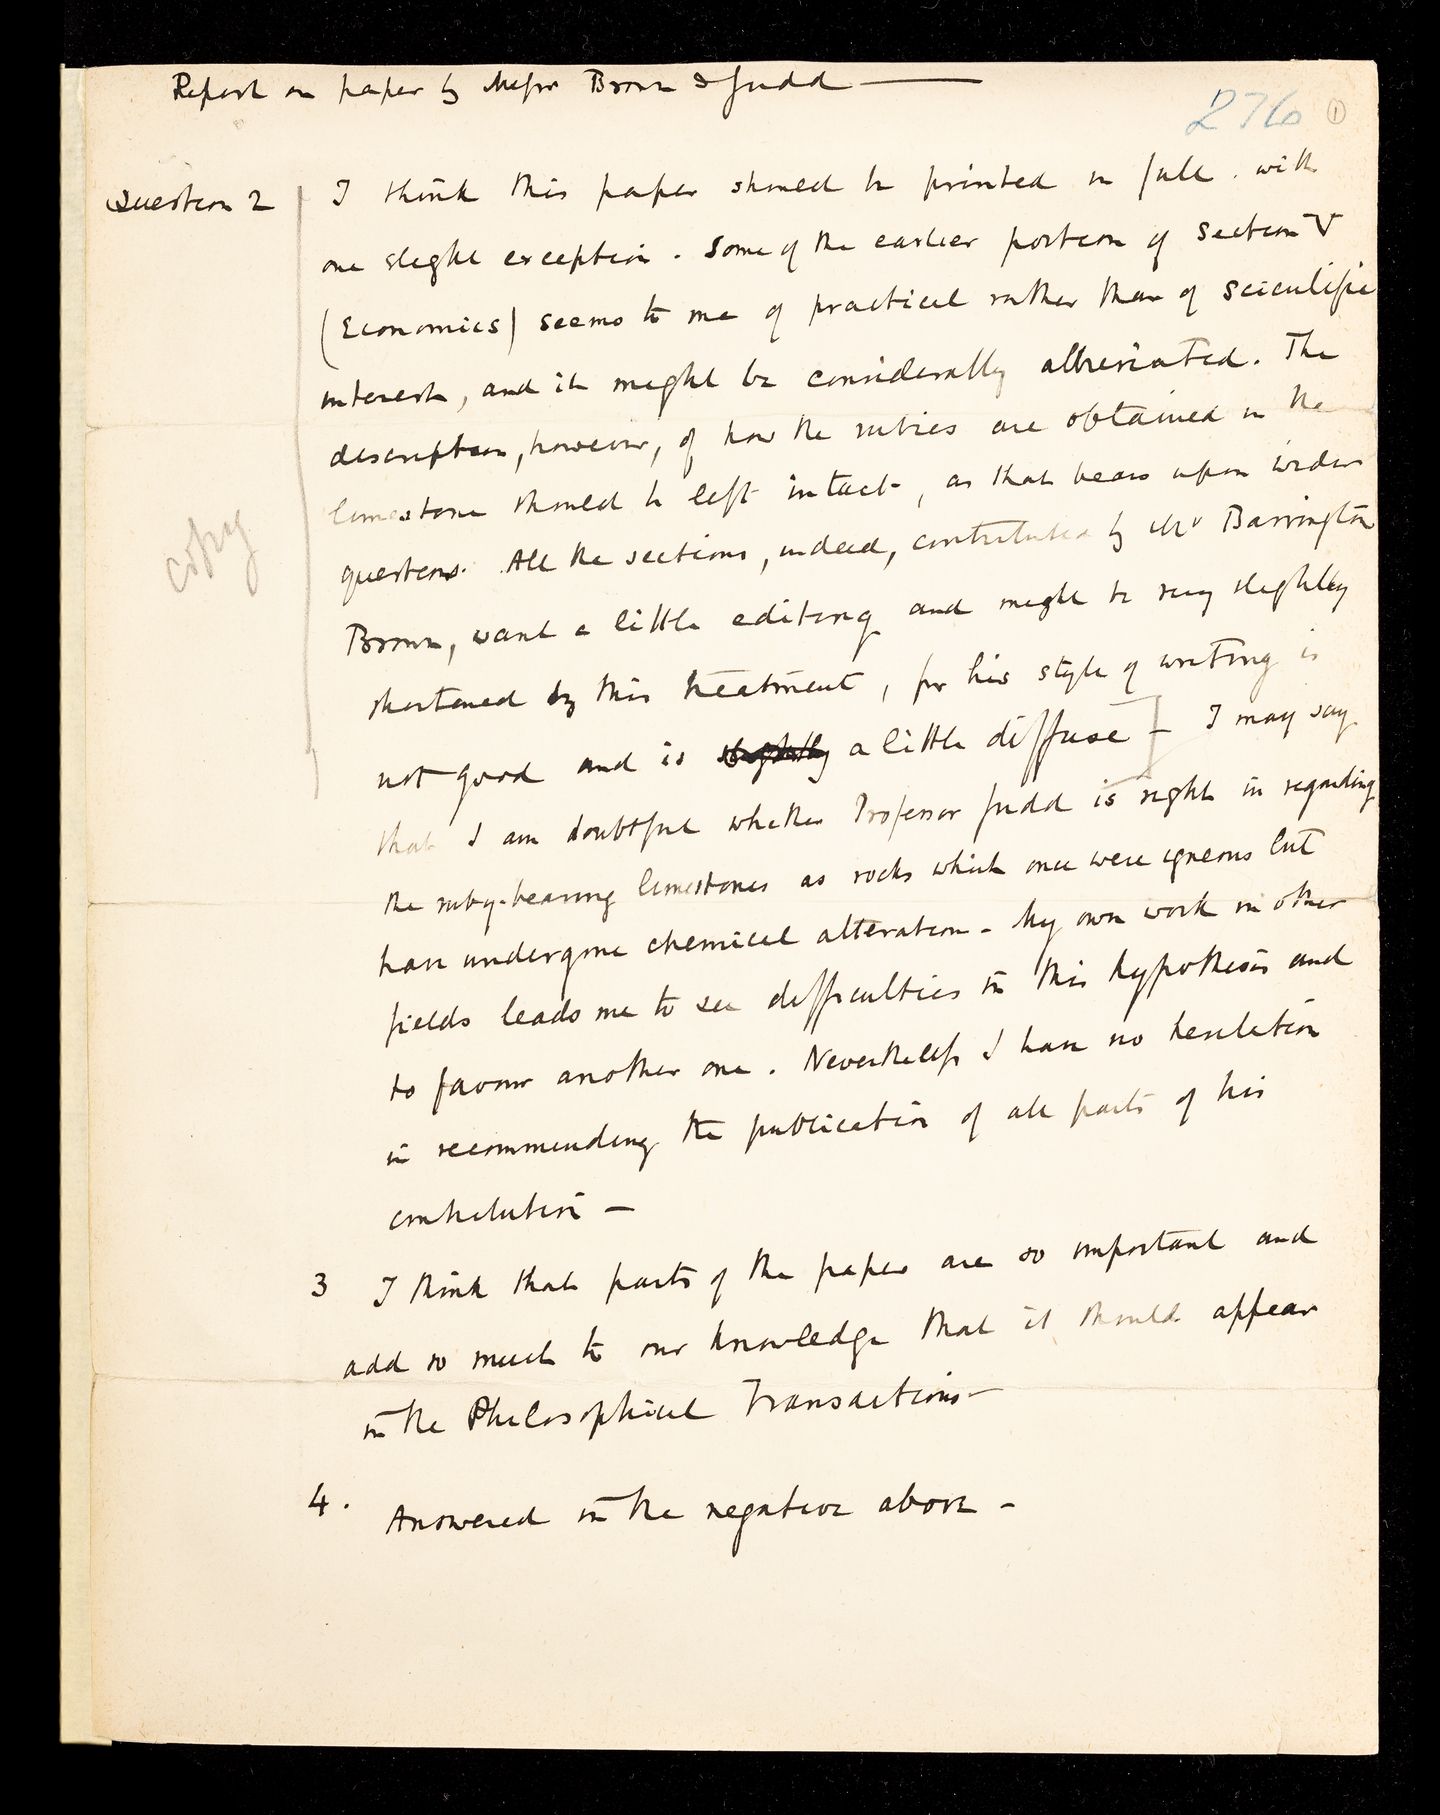 Report on paper by Messrs Brown & Judd —
276 1
Question 2 I think this paper should be printed in full. with
one slight exception. Some of the earlier portion of Section V
(Economics) seems to me of practical rather than of scientific
interest, and it might be considerably abbreviated. The
description, however, of how the rubies are obtained in the
limestone should be left intact, as that bears upon wider
questions. All the sections, indeed, contributed by Mr Barrington
copy
Brown, want a little editing and might be very slightly
shortened by this treatment, for his style of writing is
not good and is slightly a little diffuse] — I may say
that I am doubtful whether Professor Judd is right in regarding
the ruby-bearing limestones as rocks which once were igneous but
have undergone chemical alteration — My own work in other
fields leads me to see difficulties in this hypothesis and
to favour another one. Nevertheless I have no hesitation
in recommending the publication of all parts of his
contribution —
3 I think that parts of the paper are so important and
add so much to our knowledge that it should appear
in the Philosophical Transactions —
4. Answered in the negative above —